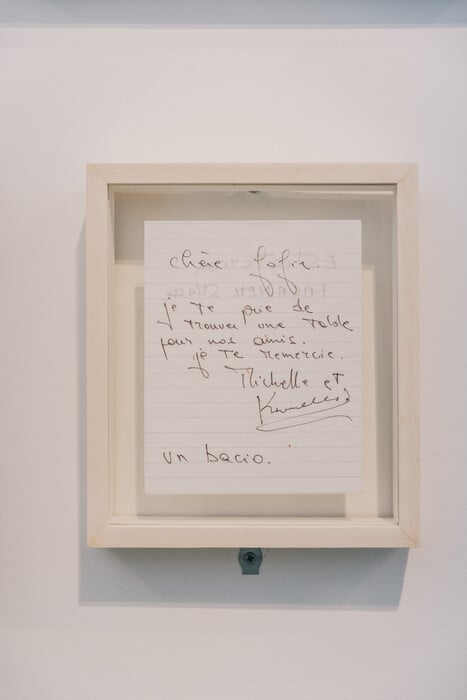 chère Fofie.
je te prie de
trouver une table
pour nos amis.
je te remercie.
Michelle et
un bacio.